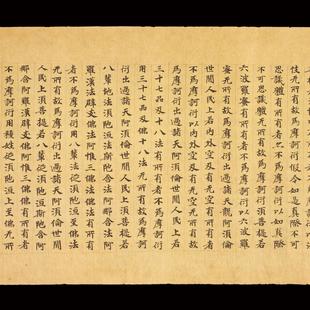 伎无所有故為摩訶衍假令如是真際不可
思議體有所有者亦不為摩訶衍以如真際
不可思議體无所有故為摩訶衍須菩提若
六波羅蜜有所有者不為摩訶衍以六波羅
蜜无所有故為摩訶衍出過諸天龍阿須倫
世間人民上若内外空及有无空有所有者
不為摩訶衍以内外空及有无空无所有故
為摩訶衍出過諸天阿須倫世間人民上若
三十七品及十八法有所有者不為摩訶衍
用三十七品及佛十八法无所有故為摩訶
衍出過諸天阿須倫世間人民上須菩提若
八輩地法須陀洹斯陀含阿那含法阿
羅漢法辟支佛法阿惟三佛法有所有
者不為摩訶衍用八輩法須陀洹至佛法
无所有故為摩訶衍出過諸天阿須倫世間
人民上須菩提若八輩須陀洹斯陀含阿
那含阿羅漢辟支佛阿惟三佛有所有者
不為摩訶衍用種姓須陀洹上至佛无所